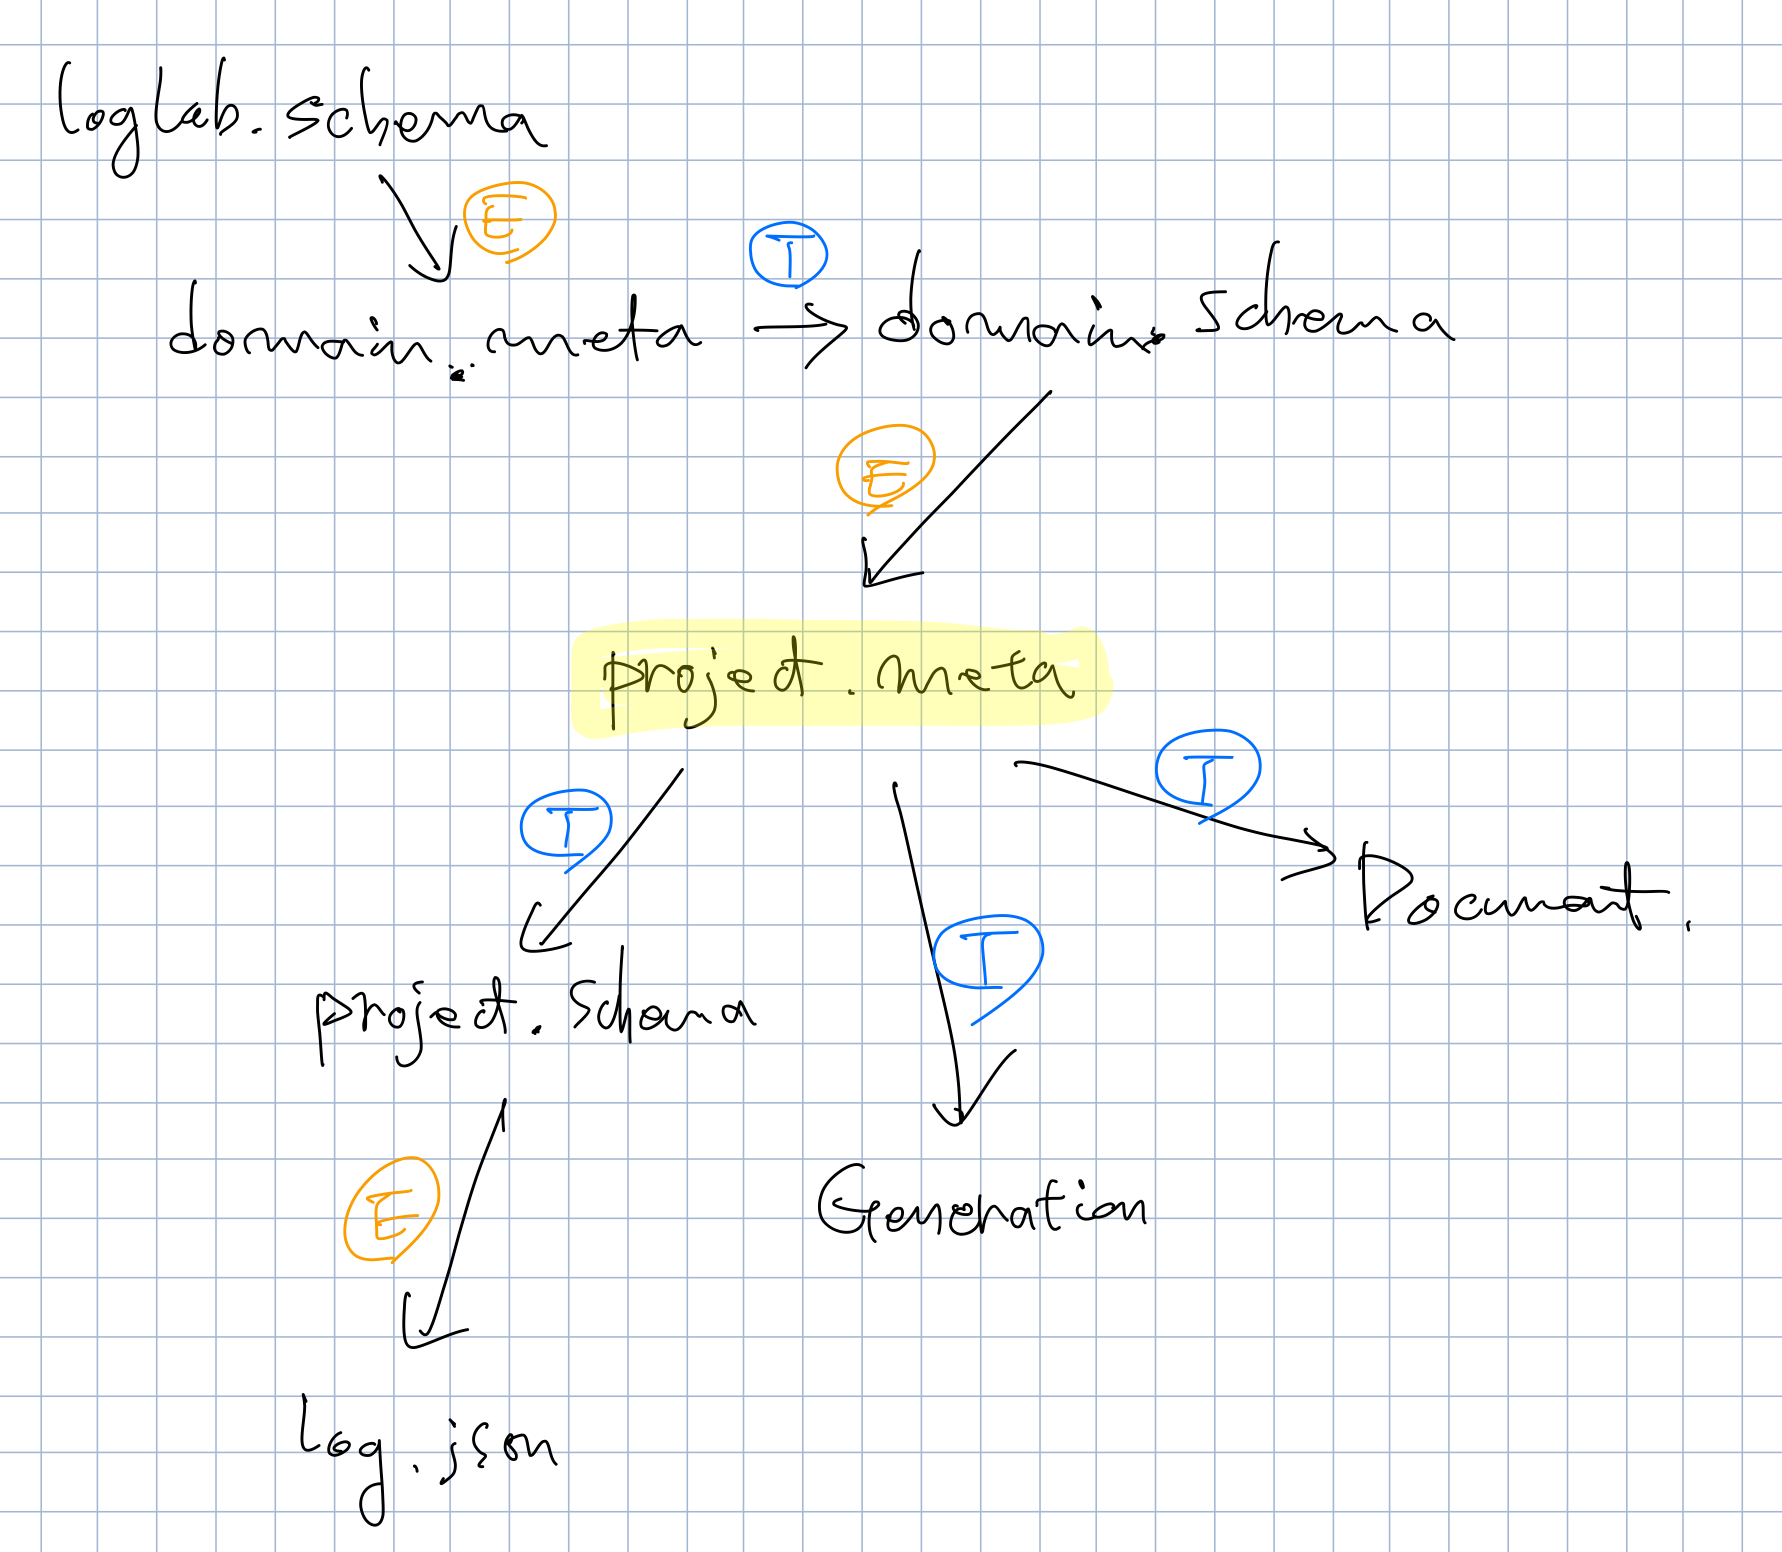 loglab.schema
E
T
domain.meta → domain.schema
E
project.meta
T
T
T
Document.
project.schema
E
Generation
log.json